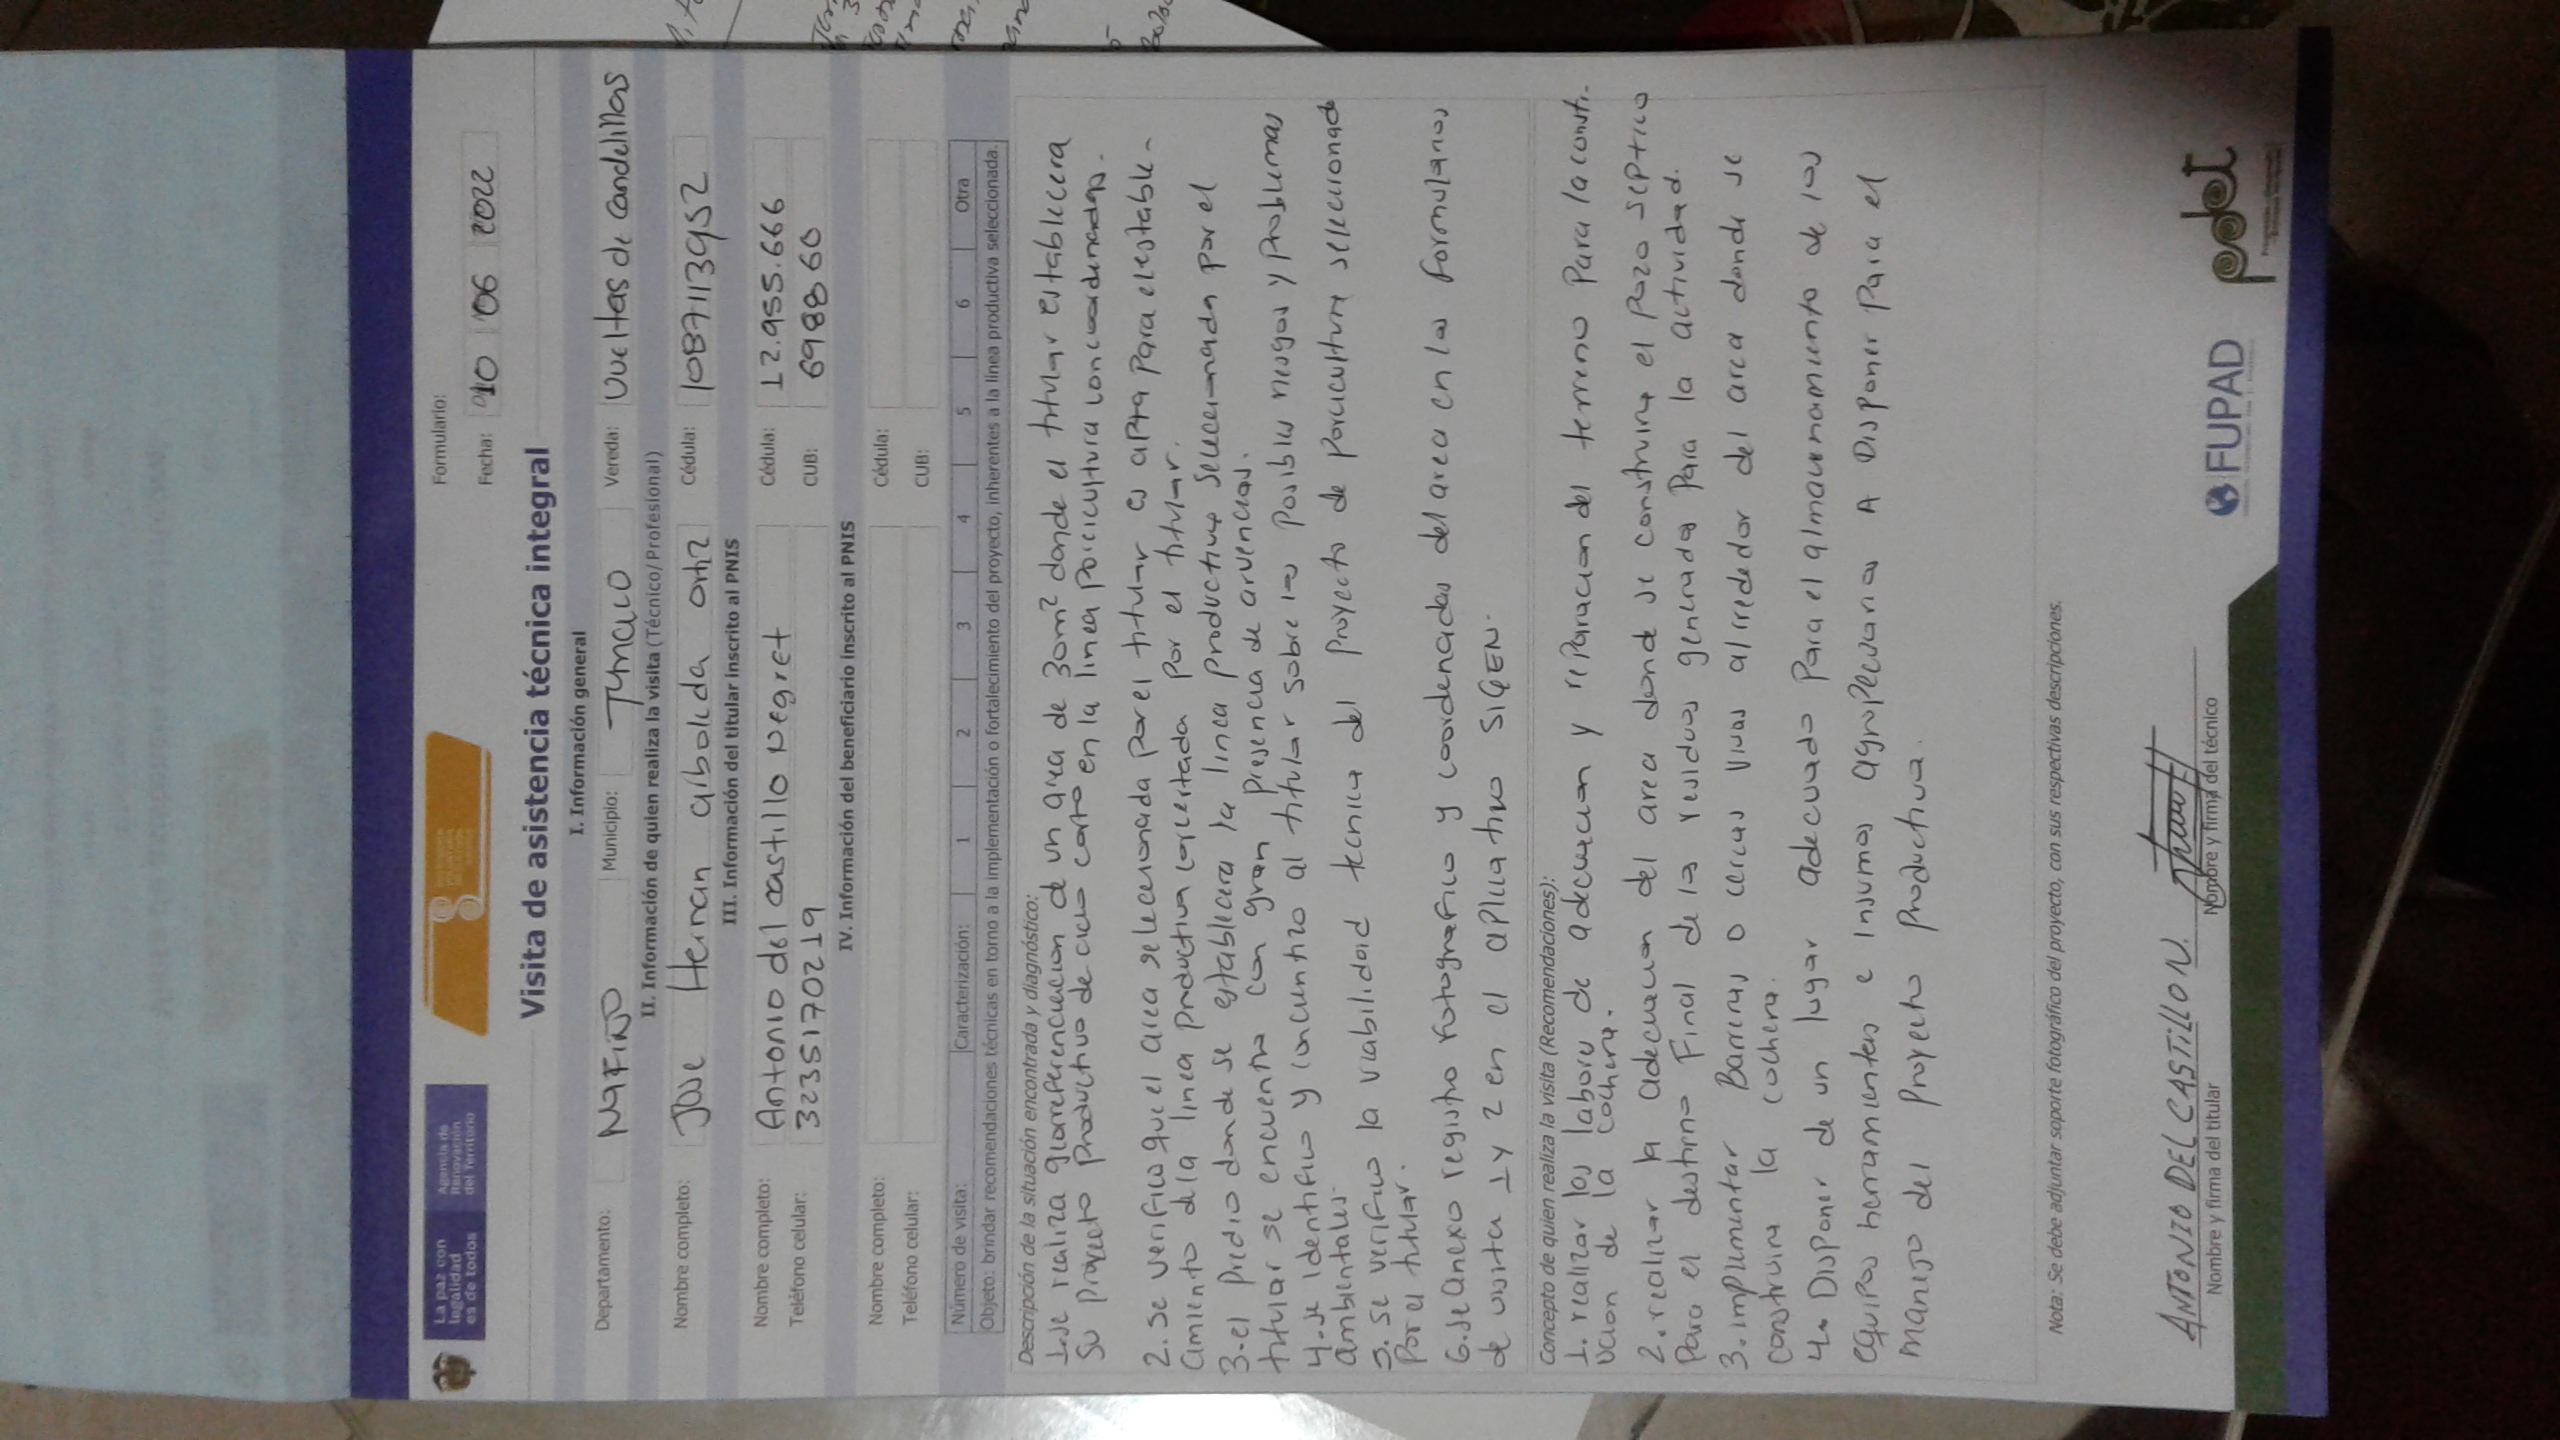 La paz con
legalidad
es de todos
Agencia de
Renovación
del Territorio
Formulario:
Fecha: 10 06 2022
Visita de asistencia técnica integral
I. Información general
Departamento: NAFIÑO Municipio: TUMACO Vereda: Vueltas de Candelillas
II. Información de quien realiza la visita (Técnico/Profesional)
Nombre completo: Jose Hernan arboleda ortiz Cédula: 1087113952
III. Información del titular inscrito al PNIS
Nombre completo: Antonio del castillo Negret Cédula: 12.955.666
Teléfono celular: 3235170219 CUB: 698860
IV. Información del beneficiario inscrito al PNIS
Nombre completo: Cédula:
Teléfono celular: CUB:
Número de visita: Caracterización: 1 2 3 4 5 6 Otra
Objeto: brindar recomendaciones técnicas en torno a la implementación o fortalecimiento del proyecto, inherentes a la línea productiva seleccionada.
Descripción de la situación encontrada y diagnóstico:
1. se realiza georreferenciacion de un area de 30m² donde el titular establecera
su proyecto productivo de ciclo corto en la linea porcicultura con coordenadas.
2. se verifico que el area seleccionada por el titular es apta para el estable-
cimiento de la linea productiva concertada por el titular.
3. el predio donde se establecera la linea productiva seleccionada por el
titular se encuentra con gran presencia de arvencias.
4. se identifico y concientizo al titular sobre los posibles riesgos y problemas
ambientales.
5. se verifico la viabilidad tecnica del proyecto de porcicultura seleccionado
por el titular.
6. se anexo registro fotografico y coordenadas del area en los formularios
de visita 1 y 2 en el aplicativo SIGEN.
Concepto de quien realiza la visita (Recomendaciones):
1. realizar las labores de adecuacion y reparacion del terreno para la constr-
ucion de la cochera.
2. realizar la adecuacion del area donde se construira el pozo septico
para el destino Final de los residuos generados para la actividad.
3. implementar Barreras o cercas vivas alrrededor del area donde se
construira la cochera.
4. Disponer de un lugar adecuado para el almacenamiento de los
equipos herramientas e insumos agropecuarios A Disponer para el
manejo del proyecto productivo.
Nota: Se debe adjuntar soporte fotográfico del proyecto, con sus respectivas descripciones.
ANTONIO DEL CASTILLO N.
Nombre y firma del titular
Nombre y firma del técnico
FUPAD
pdet